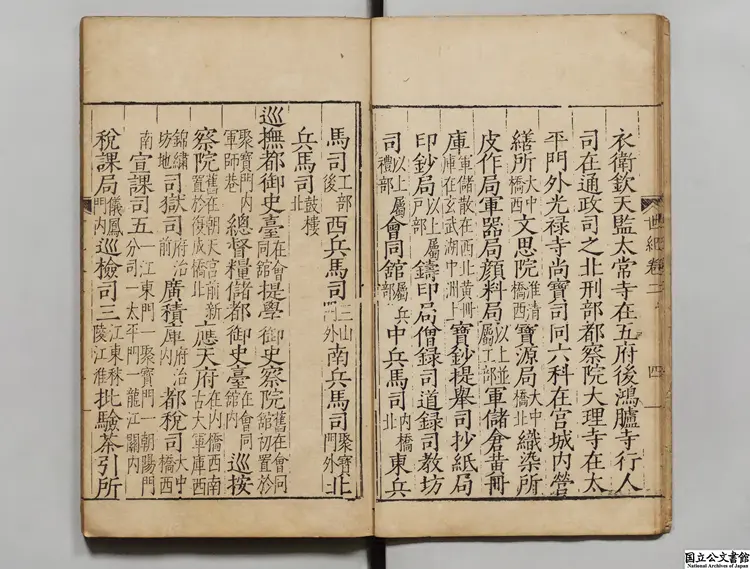 衣衛欽天監太常寺在五府後鴻臚寺行人
司在通政司之北刑部都察院大理寺在太
平門外光禄寺尚寶司同六科在宮城内營
繕所大中橋西文思院淮清橋西寶源局大中橋北織染所
皮作局軍器局顔料局以上並屬工部軍儲倉黄冊
庫軍儲散在西北黄冊庫在玄武湖中洲上寶鈔提舉司抄紙局
印鈔局以上屬户部鑄印局僧録司道録司教坊
司以上屬禮部會同館屬兵部中兵馬司内橋北東兵
世紀卷二
四
馬司工部後西兵馬司三山門外南兵馬司聚寶門外北
兵馬司鼓樓北
巡撫都御史臺在會同館提學御史察院舊在會同館初置於
聚寶門内軍師巷總督糧儲都御史臺在會同館内巡按
察院舊在朝天宮前新置於復成橋北應天府在内橋西南古大軍庫西
錦繡坊地司獄司府治前廣積庫府治内都税司大中橋西
南宣課司五一江東門一聚寶門一朝陽門分司一太平門一龍江關内
税課局儀鳳門内巡檢司三江東秣陵江淮批驗茶引所
国立公文書館
National Archives of Japan